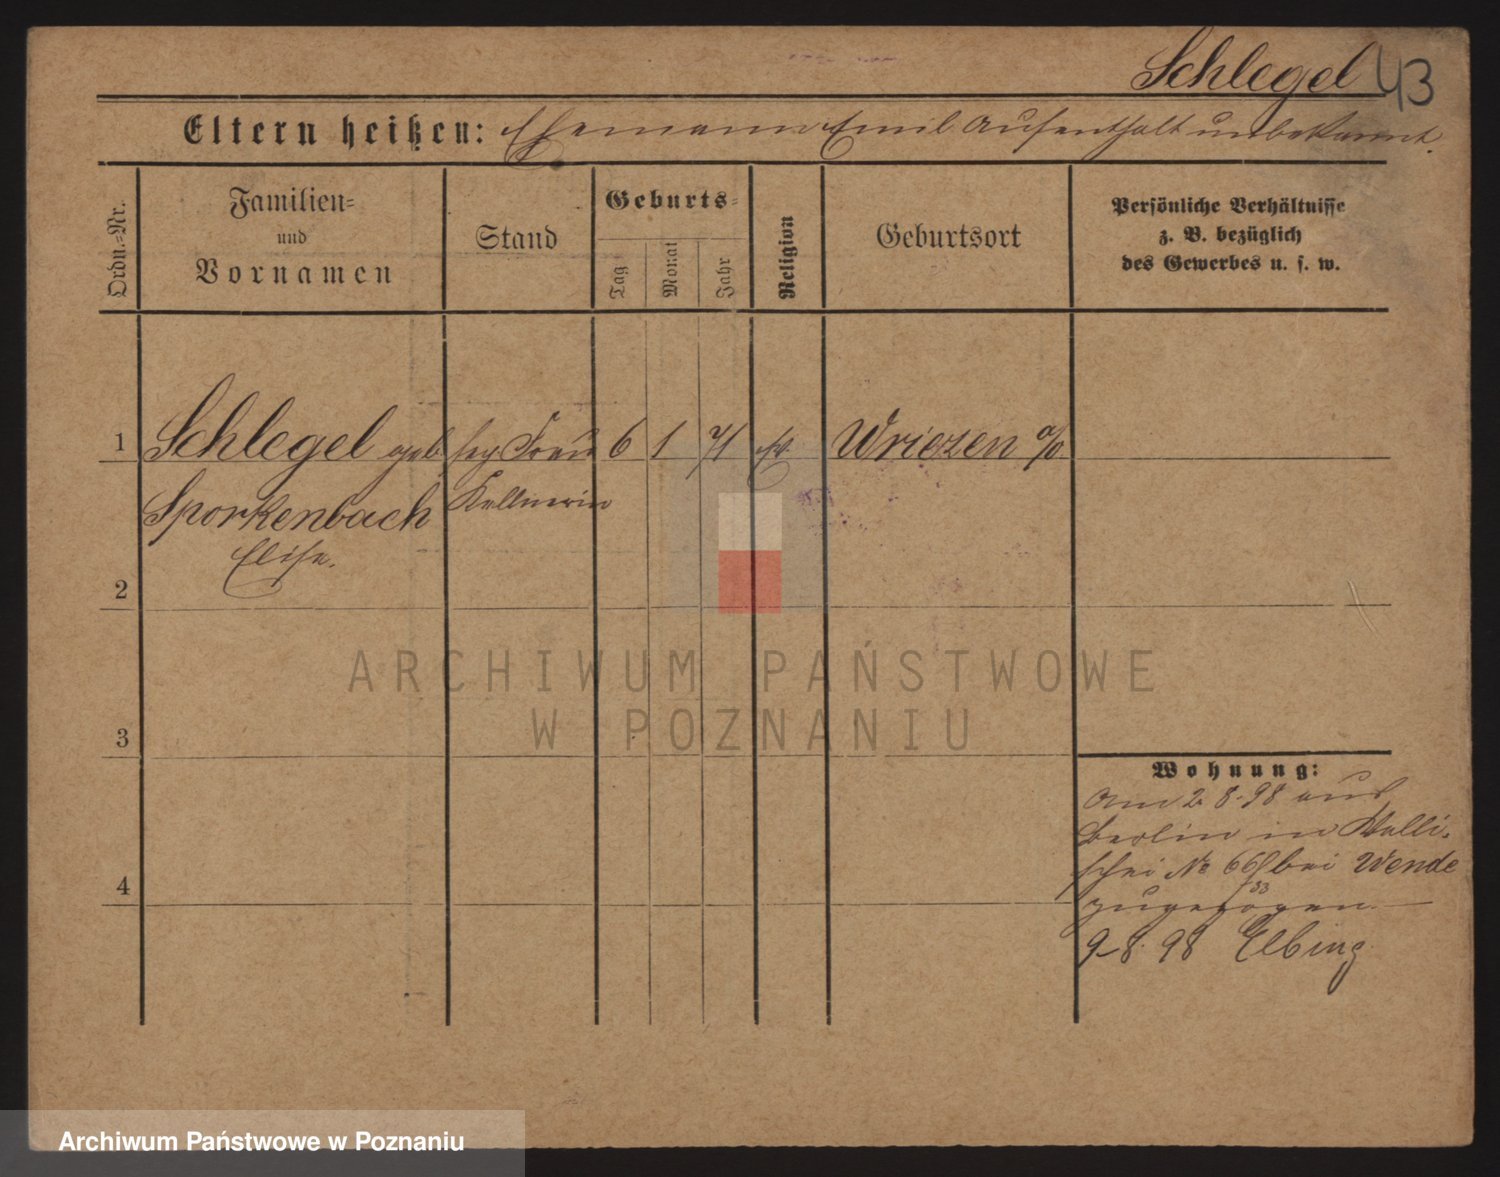 Schlegel 43
Eltern heißen: Ehemann Emil Aufenthalt unbekannt.
Ordn.-Nr.
Familien-
und
Vornamen
Stand
Geburts-
Tag
Monat
Jahr
Religion
Geburtsort
Persönliche Verhältnisse
z. B. bezüglich
des Gewerbes u. s. w.
1 Schlegel geb Frau 6 1 71 ev. Wriezen a/O
Sporkenbach Kellnerin
Elise.
2
3
4
Wohnung:
Am 2. 8. 98 aus
Berlin in Walli-
schei No 66 bei Wende
zugezogen
9. 8. 98 Elbing
ARCHIWUM PAŃSTWOWE
W POZNANIU
Archiwum Państwowe w Poznaniu